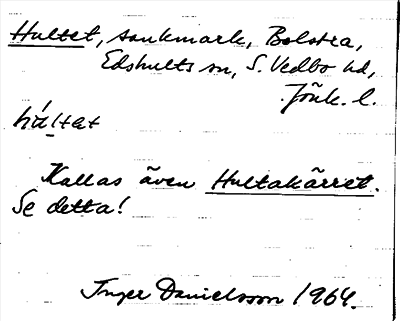 Hultet, sankmark, Bolstra,
Edshults sn, S. Vedbo hd,
Jönk. l.
húltet
Kallas även Hultakärret.
Se detta!
Inger Danielsson 1964.